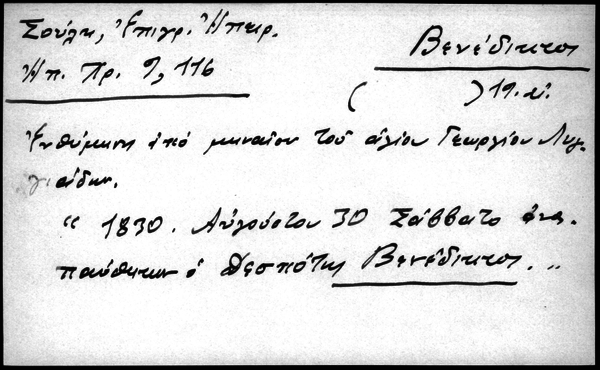 Σούλη, Ἐπιγρ. Ἠπειρ.
Ἠπ. Χρ. 9, 116
Βενέδικτος
( ) 19. αἰ.
Ἐνθύμησις ἀπὸ μηναῖον τοῦ ἁγίου Γεωργίου Λυγ-
γιάδων.
“ 1830. Αὐγούστου 30 Σάββατο ἀνε-
παύθηκεν ὁ Δεσπότης Βενέδικτος. „